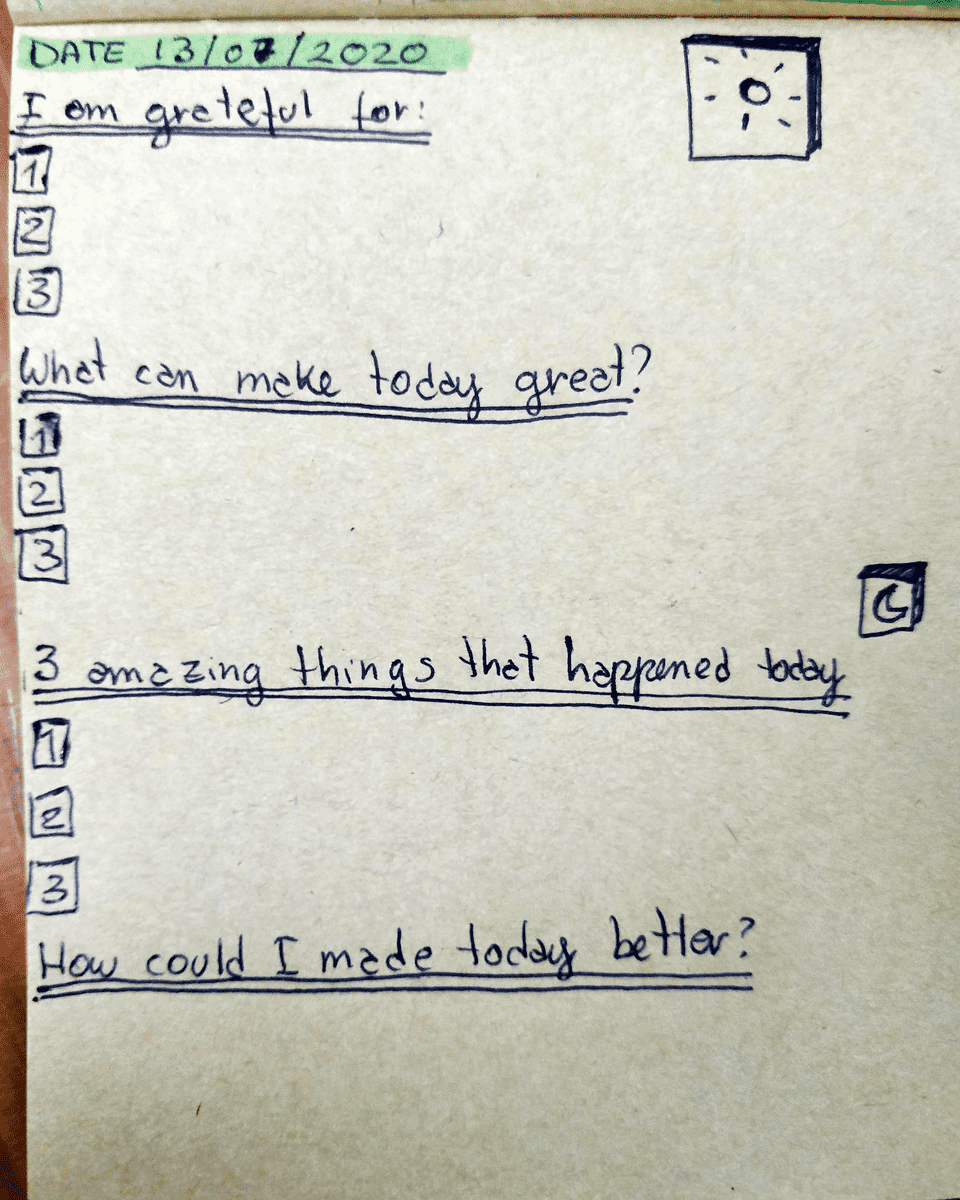 DATE 13/07/2020
I am grateful for:
1
2
3
What can make today great?
1
2
3
3 amazing things that happened today
1
2
3
How could I made today better?